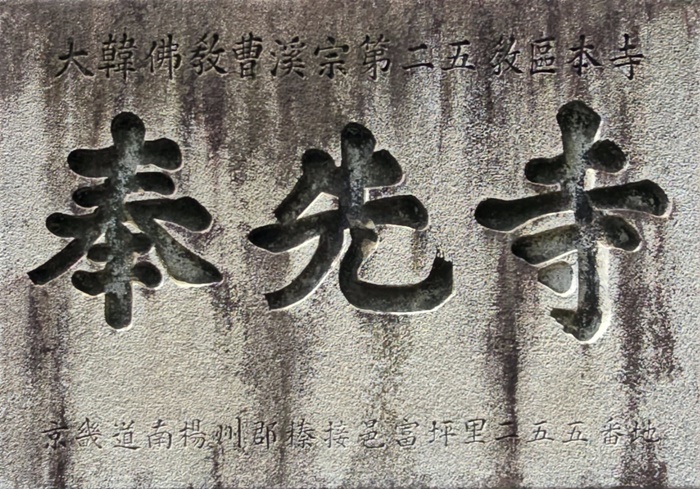 大韓佛敎曹溪宗第二五敎區本寺
奉先寺
京畿道南楊州郡榛接邑富坪里二五五番地